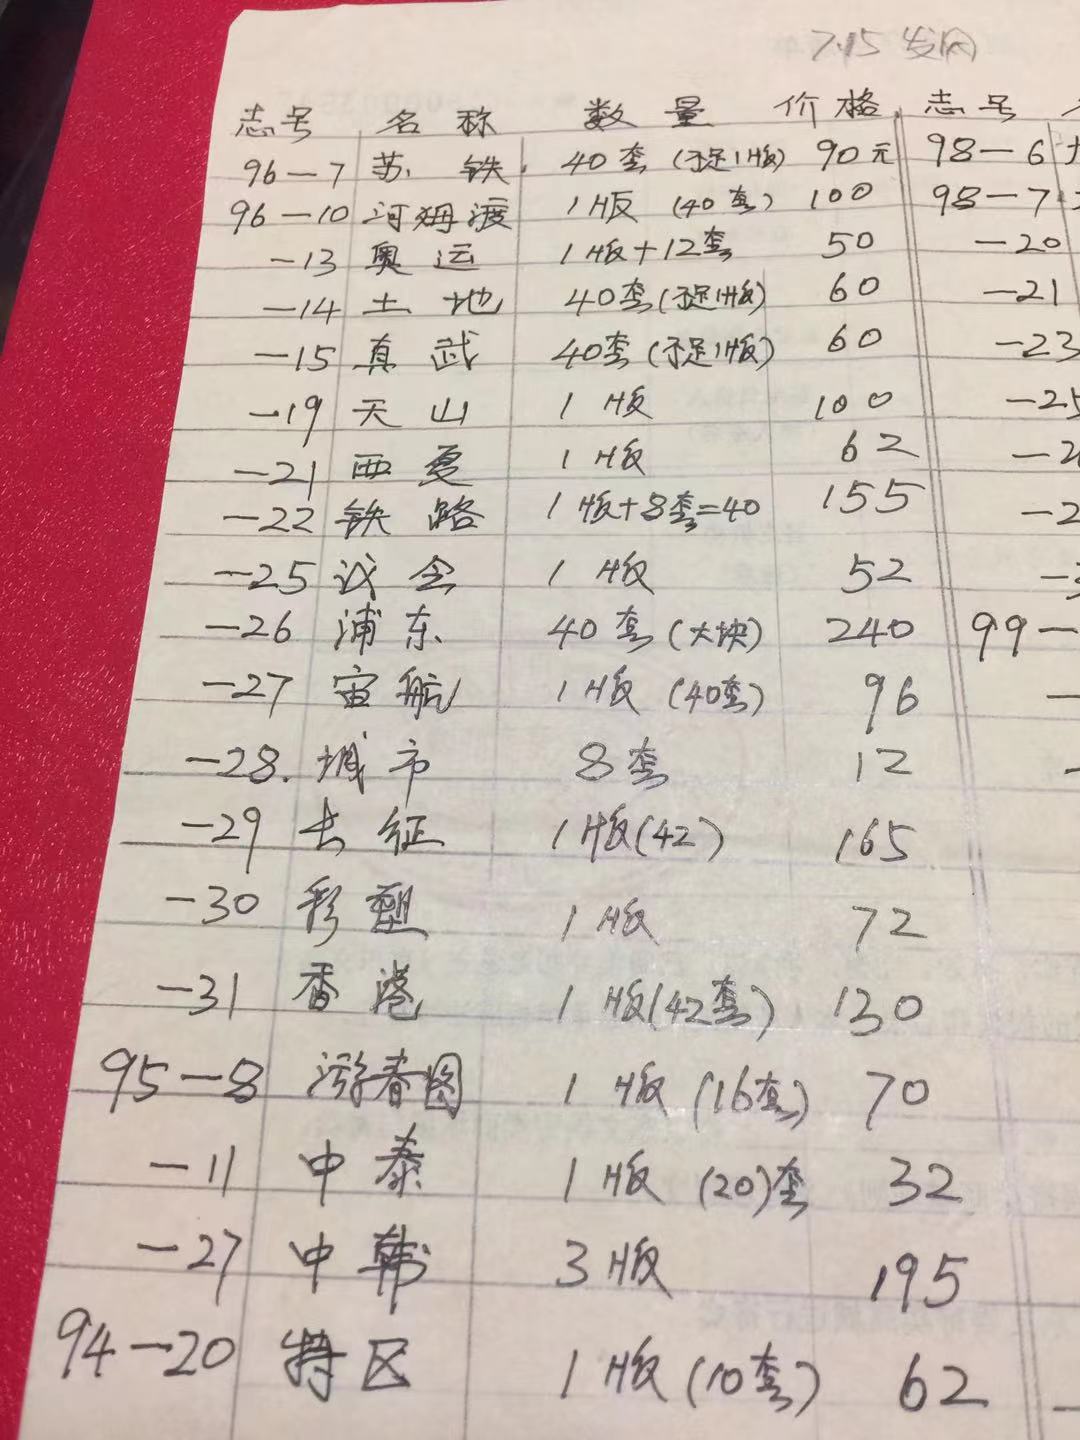 7.15 发网
志号 名称 数量 价格 志号
96—7 苏铁 40套(不足1版) 90元 98—6
96—10 河姆渡 1版 (40套) 100 98—7
—13 奥运 1版+12套 50 —20
—14 土地 40套(不足1版) 60 —21
—15 真武 40套(不足1版) 60 —23
—19 天山 1版 100 —25
—21 西夏 1版 62
—22 铁路 1版+8套=40 155
—25 议会 1版 52
—26 浦东 40套(大块) 240 99—
—27 宙航 1版 (40套) 96
—28. 城市 8套 12
—29 长征 1版(42) 165
—30 彩塑 1版 72
—31 香港 1版(42套) 130
95—8 游春图 1版 (16套) 70
—11 中泰 1版 (20)套 32
—27 中韩 3版 195
94—20 特区 1版 (10套) 62